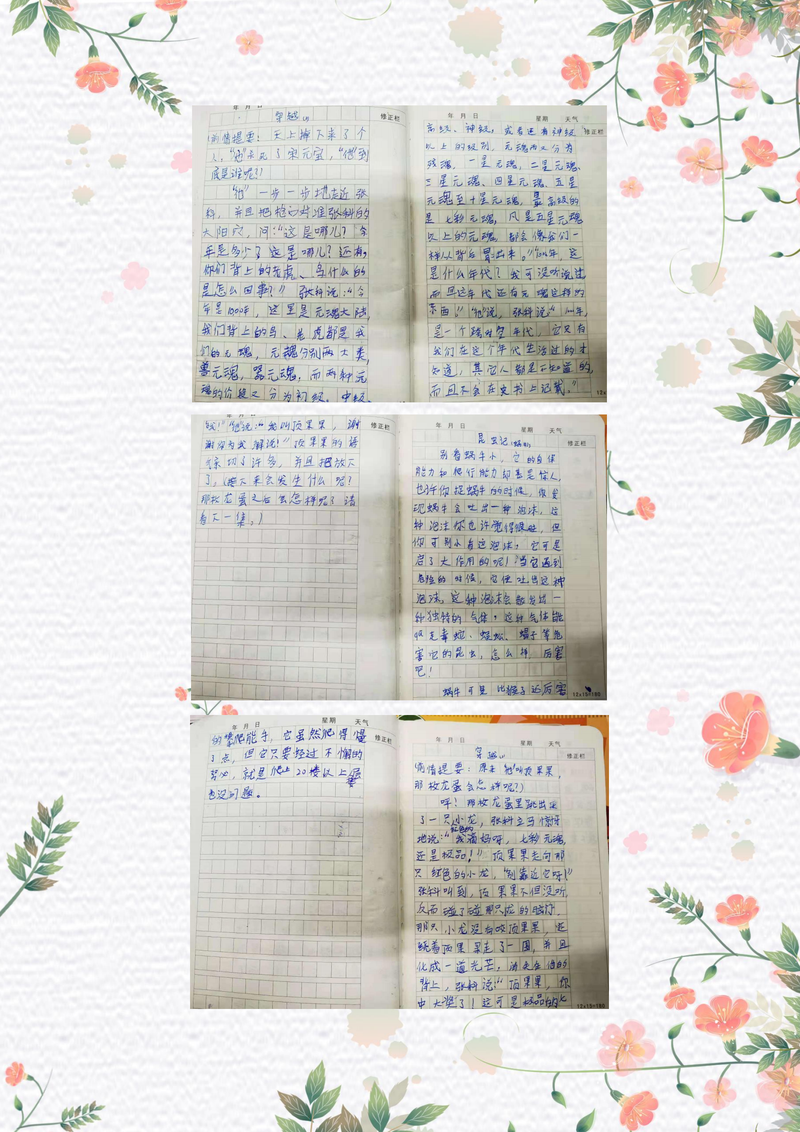 年 月 日
修正栏
穿越
(前情提要：天上掉下来了个
人，“他”杀死了宋元宝，“他”到
底是谁呢?)
“他”一步一步地走近张
科，并且把枪口对准张科的
太阳穴，问：“这是哪儿？今
年是多少？这是哪儿？还有，
你们背上的老虎、鸟什么的
是怎么回事？” 张科说：“今
年是1000年，这里是元魂大陆
我们背上的鸟、老虎都是我
们的元魂，元魂分别两大类，
兽元魂，器元魂，而两种元
魂的价格之分为初级、中级、
年 月 日 星期 天气
修正栏
高级、神级，或者还有神级
以上的级别，元魂内又分为
残魂、一星元魂、二星元魂、
三星元魂、四星元魂、五星
元魂至十星元魂，最高级的
是七彩元魂，凡是五星元魂
以上的元魂，都会像我们一
样从背后冒出来。”“1000年，这
是什么年代？我可没听说过
而且这年代还有元魂这样的
东西！”他说，张科说“1000年，
是一个残时代，它只有
我们在这个年代生活过的才
知道，其它人都是不知道的，
而且不会在史书上记载。”
年 月 日
修正栏
“他”说：“我叫顶果果，谢
谢你为我解说！”顶果果的语
气亲切了许多，并且把放下
了，(接下来会发生什么呢？
那枚龙蛋之后会怎样呢？请
看下一集。)
年 月 日 星期 天气
修正栏
昆虫记(蜗牛)
别看蜗牛小，它的自保
能力和爬行能力却甚是惊人，
也许你捉蜗牛的时候，你会
现蜗牛会吐出一种泡沫，这
种泡沫你也许觉得恶心，但
你可别小看这泡沫，它可是
启了大作用的呢！当它遇到
危险的时候，它便吐出这种
泡沫，这种泡沫会散发出一
种独特的气体，这种气体能
吸毒蛇、蜈蚣、蝎子等危
害它的昆虫，怎么样 厉害
吧！
蜗牛可是比猴子还厉害
12x15=180
年 月 日 星期 天气
修正栏
的攀爬能手，它虽然爬得慢
了点，但它只要经过不懈的
努力，就是爬上20楼以上
也没问题。
年 月 日 星期 天气
修正栏
穿越
(前情提要：原来“他”叫顶果果，
那枚龙蛋会怎样呢？)
呼！那枚龙蛋里跳出来
了一只小龙，张科立马惊讶
地说：“我滴妈呀，七彩元魂，
还是极品！”顶果果走向那
只红色的小龙，“别靠近它呀！”
张科叫到，顶果果不但没听，
反而碰了碰那只龙的脑门，
那只小龙没有咬顶果果，还
绕着顶果果走了一圈，并且
化成一道光芒，消失在他的
背上，张科说：“顶果果，你
中大奖了！这可是极品的七
12x15=180